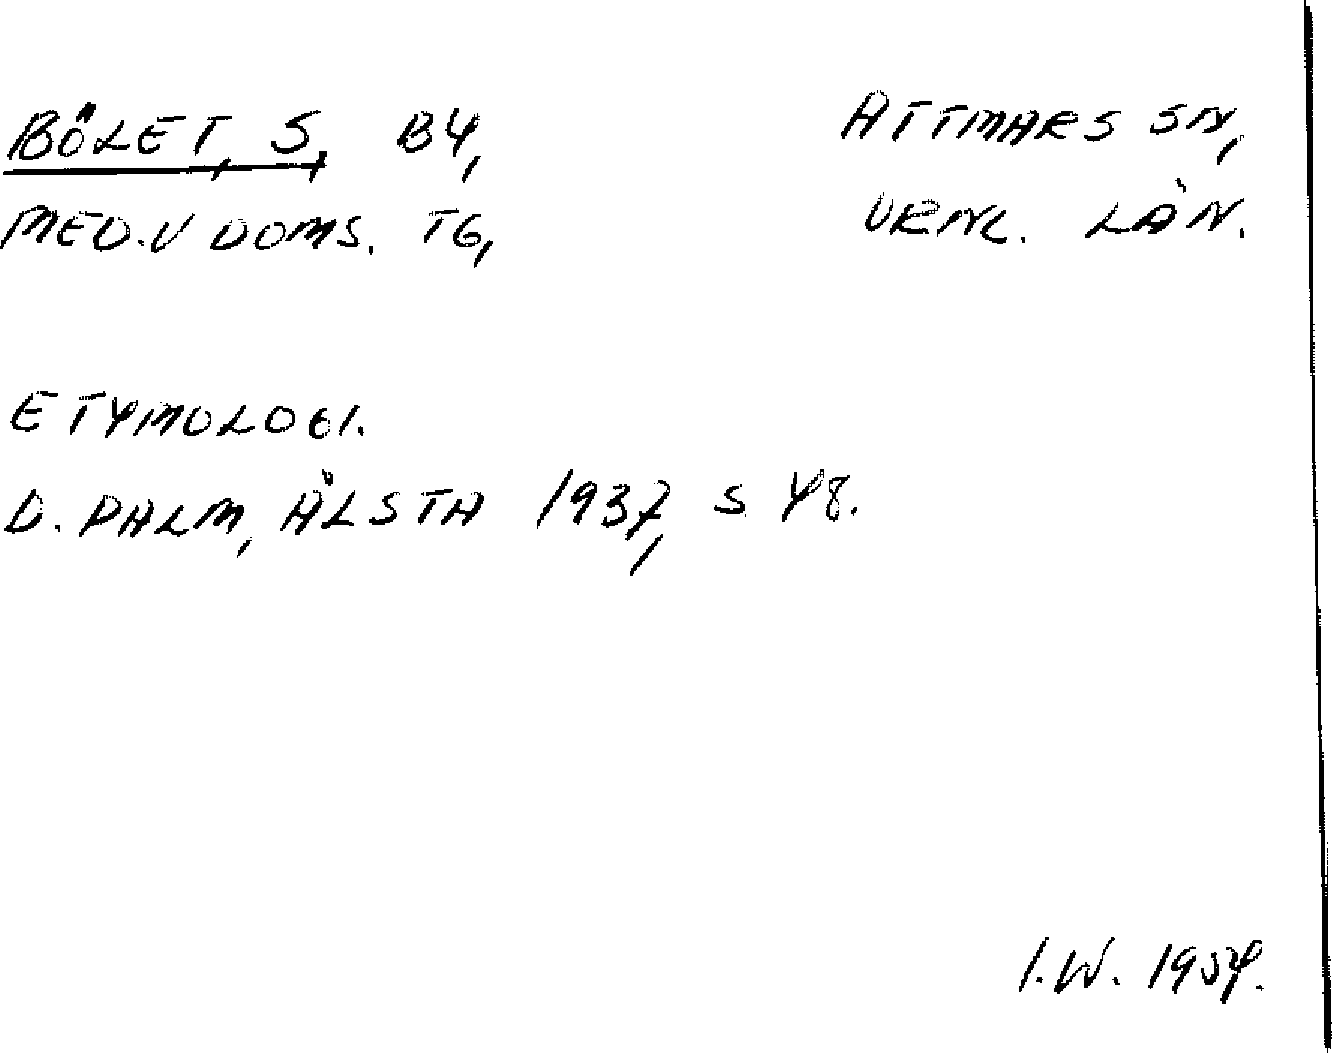 BÖLET, S, BY, ATTMARS SN,
MED.V DOMS. TG, VRNL. LÄN.
ETYMOLOGI.
D. PALM, ÅLSTA 1937, S 48.
I.W. 1954.